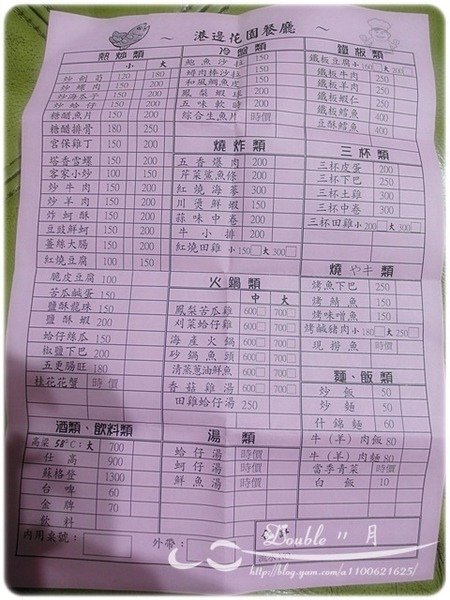 ～ 港邊花園餐廳 ～
熱炒類
小 大
炒劍筍 120 180
炒螺肉 150 200
炒海瓜子 150 200
炒蛤仔 150 200
糖醋魚片 150 200
糖醋排骨 180 250
宮保雞丁 150 200
塔香雪螺 150 200
客家小炒 100 150
炒牛肉 150 200
炒羊肉 150 200
炸蚵酥 150 200
豆豉鮮蚵 150 200
薑絲大腸 150 200
紅燒豆腐 100 150
脆皮豆腐 100
苦瓜鹹蛋 150
鹽酥龍珠 150
鹽酥蝦 200
蛤仔絲瓜 150
椒鹽下巴 200
五更腸旺 180
桂花花蟹 時價
酒類、飲料類
高梁 58°C:大 700
仕高 900
蘇格登 1300
台啤 60
金牌 70
飲料
內用桌號：
外帶：
冷盤類
鮑魚沙拉 150
和風鯛魚皮 200
鳳梨蝦球 200
五味軟時 200
綜合生魚片 時價
燒炸類
五香爆肉 200
芹菜鯊魚條 200
紅燒海蔘 300
川燙鮮蝦 150
蒜味中卷 200
牛小排 200
紅燒田雞 小150 大300
火鍋類
中 大
鳳梨苦瓜雞 600 700
刈菜蛤仔雞 600 700
海產火鍋 600 700
砂鍋魚頭 600 700
清蒸蔥油鮮魚 時價
香菇雞湯 600 700
田雞蛤仔湯 250
湯類
蛤仔湯 時價
蚵仔湯 時價
鮮魚湯 時價
鐵板類
鐵板豆腐 小160 大200
鐵板牛肉 250
鐵板羊肉 250
鐵板蝦仁 250
鐵板鱈魚 400
豆酥鱈魚 400
三杯類
三杯皮蛋 200
三杯下巴 250
三杯土雞 300
三杯中卷 300
三杯田雞 小200 大300
燒や牛類
烤魚下巴 250
烤鯖魚 150
烤味噌魚 150
烤鹹豬肉 小180 大250
現撈魚 時價
麵、飯類
炒飯 50
炒麵 50
什錦麵 60
牛(羊)肉飯 80
牛(羊)肉麵 80
當季青菜 時價
白飯 10
Double 11 月
http://blog.yam.com/a1100621625/